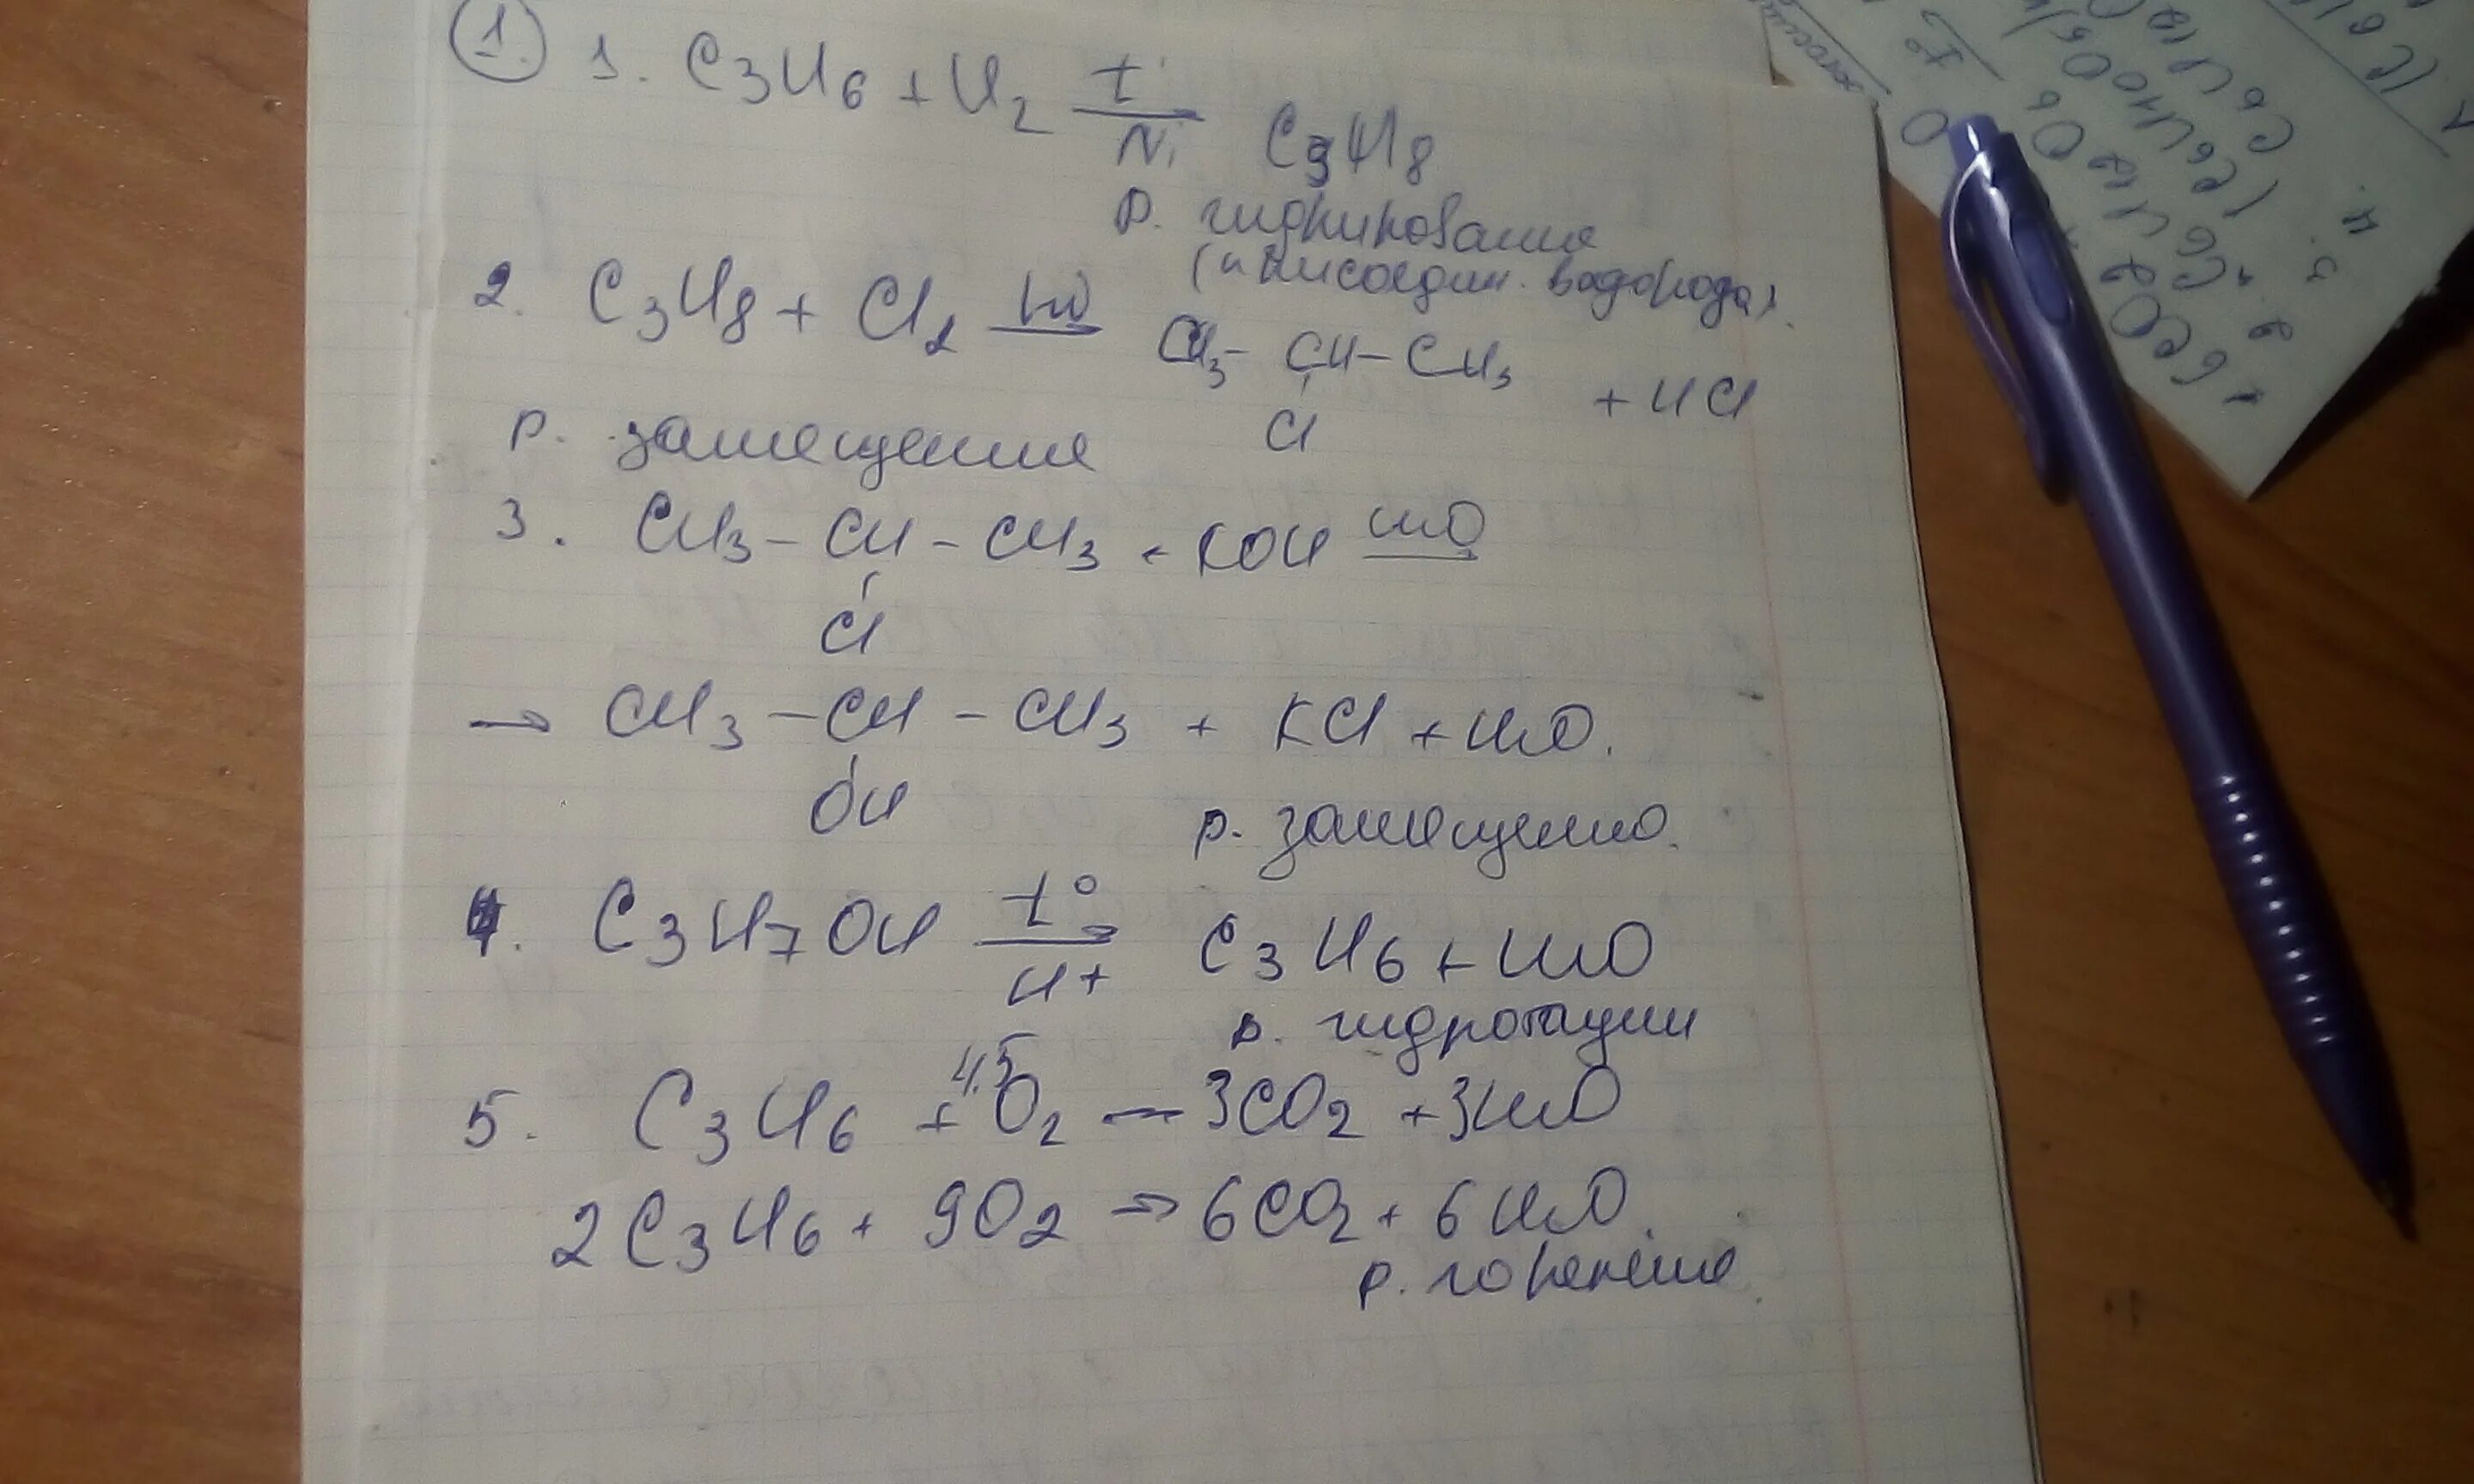 1. 1. C3H6 + H2 t→ Ni C3H8
р. гидрирование
(присоедин. водорода).
2. C3H8 + Cl2 hν→ CH3 – CH – CH3 + HCl
Cl
р. замещение
3. CH3 – CH – CH3 + KOH H2O→
Cl
→ CH3 – CH – CH3 + KCl + H2O.
OH
р. замещение.
4. C3H7OH t°→ H+ C3H6 + H2O
р. гидротации
5. C3H6 + 4,5 O2 — 3CO2 + 3H2O
2C3H6 + 9O2 → 6CO2 + 6H2O.
р. горение.